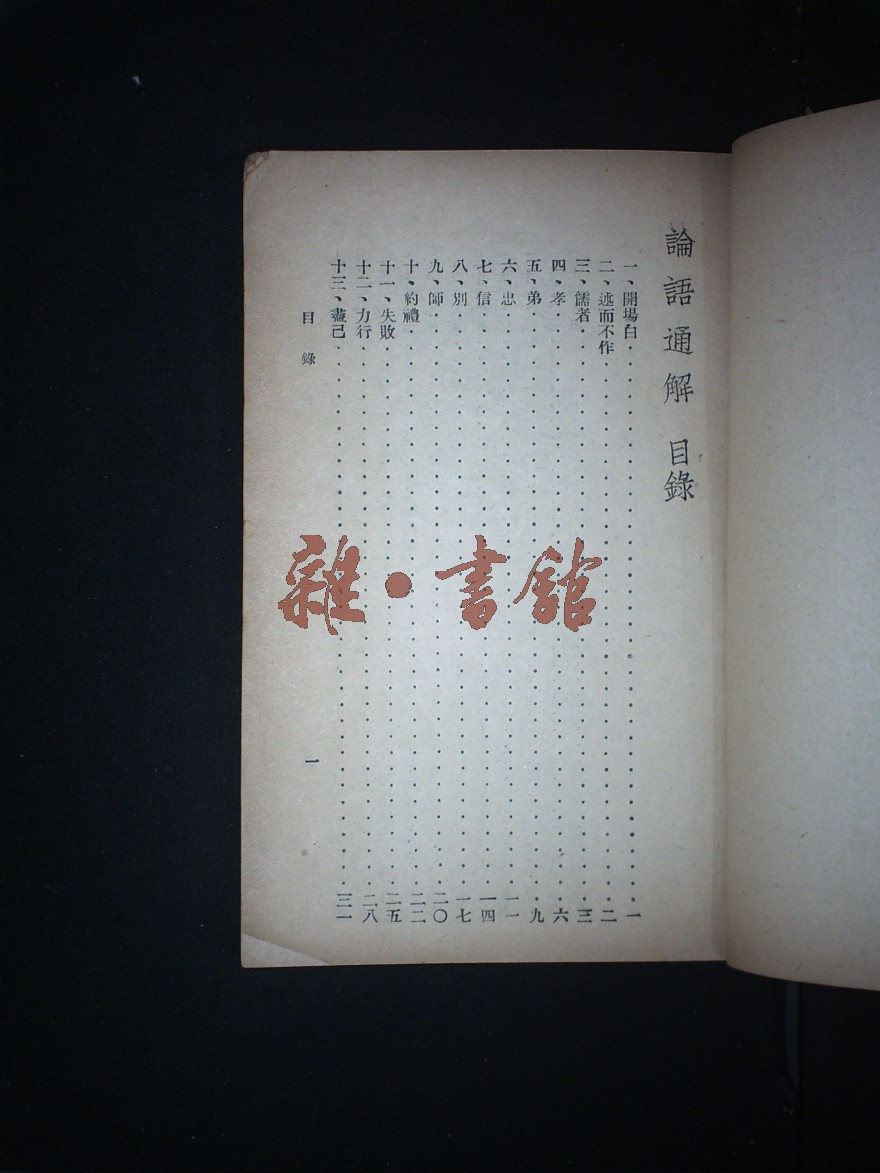 論語通解 目錄
一、開場白 一
二、述而不作 二
三、儒者 三
四、孝 六
五、弟 九
六、忠 一一
七、信 一四
八、別 一七
九、師 二〇
十、約禮 二二
十一、失敗 二五
十二、力行 二八
十三、盡己 三一
目錄 一
雜·書館